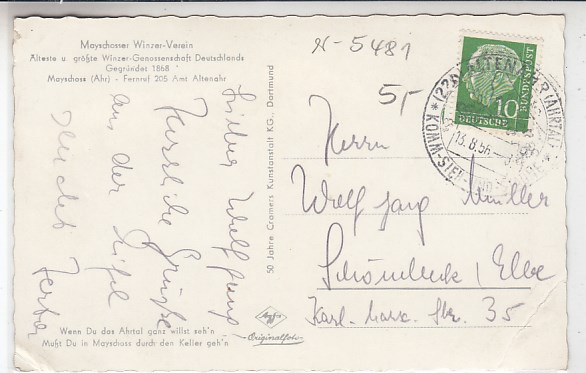 Mayschosser Winzer-Verein
Älteste u. größte Winzer-Genossenschaft Deutschlands
Gegründet 1868
Mayschoss (Ahr) - Fernruf 205 Amt Altenahr
Lieber Wolfgang!
Herzliche Grüße
aus der Eifel
Wenn Du das Ahrtal ganz willst seh'n
Mußt Du in Mayschoss durch den Keller geh'n
50 Jahre Cramers Kunstanstalt KG., Dortmund
Agfa
Originalfoto
N-5481
5,-
DEUTSCHE
BUNDESPOST
10
(22b) ALTENAHR (AHRTAL)
13.8.56
* KOMM-SIEH
Herrn
Wolfgang Müller
Schönebeck / Elbe
Karl-Marx-Str. 35